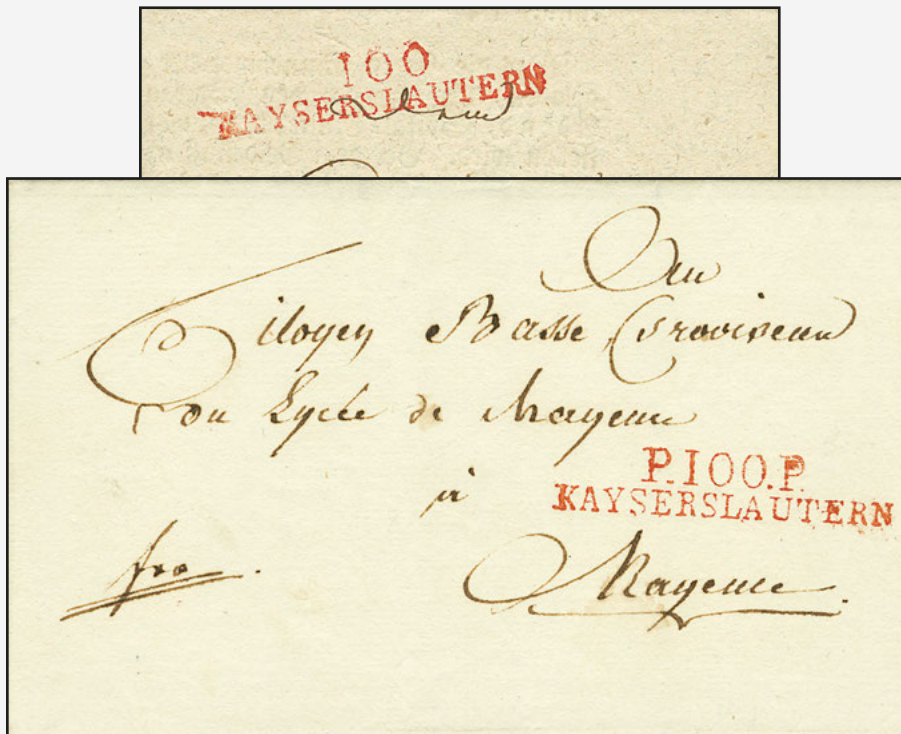 100
KAYSERSLAUTERN
Au
Citoyen Basse, Proviseur
du Lycée de Mayence
P.100.P.
KAYSERSLAUTERN
à
fro
Mayence.